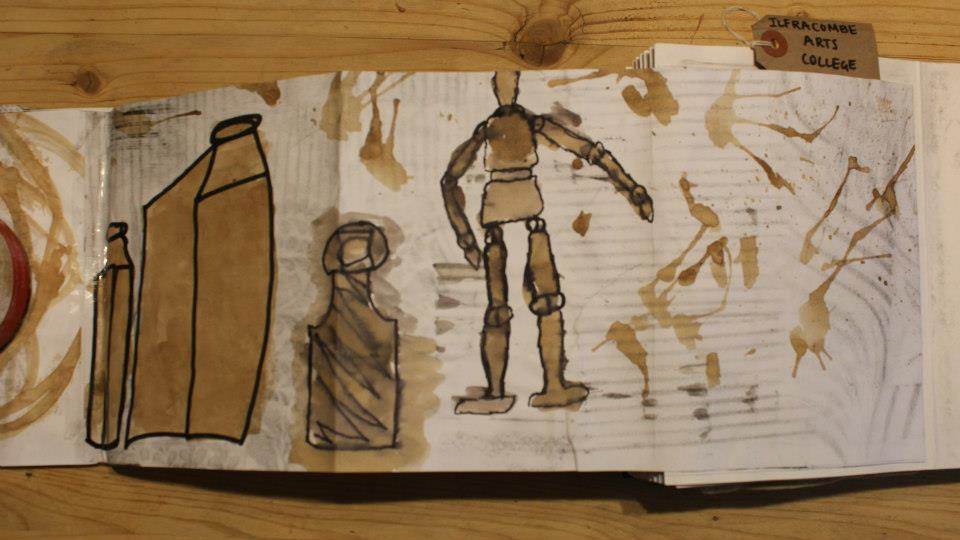 ILFRACOMBE
ARTS
COLLEGE